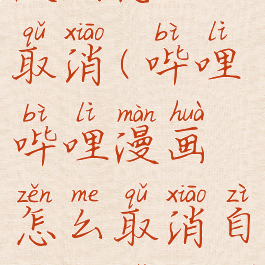 qǔ xiāo bì lì
取消(哔哩
bì lì màn huà
哔哩漫画
zěn me qǔ xiāo zì
怎么取消自